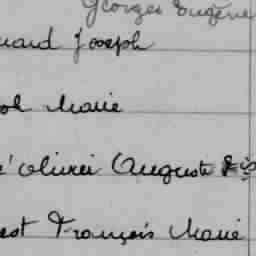 Georges Eugène
uard Joseph
ol Marie
Auguste
est François Marie